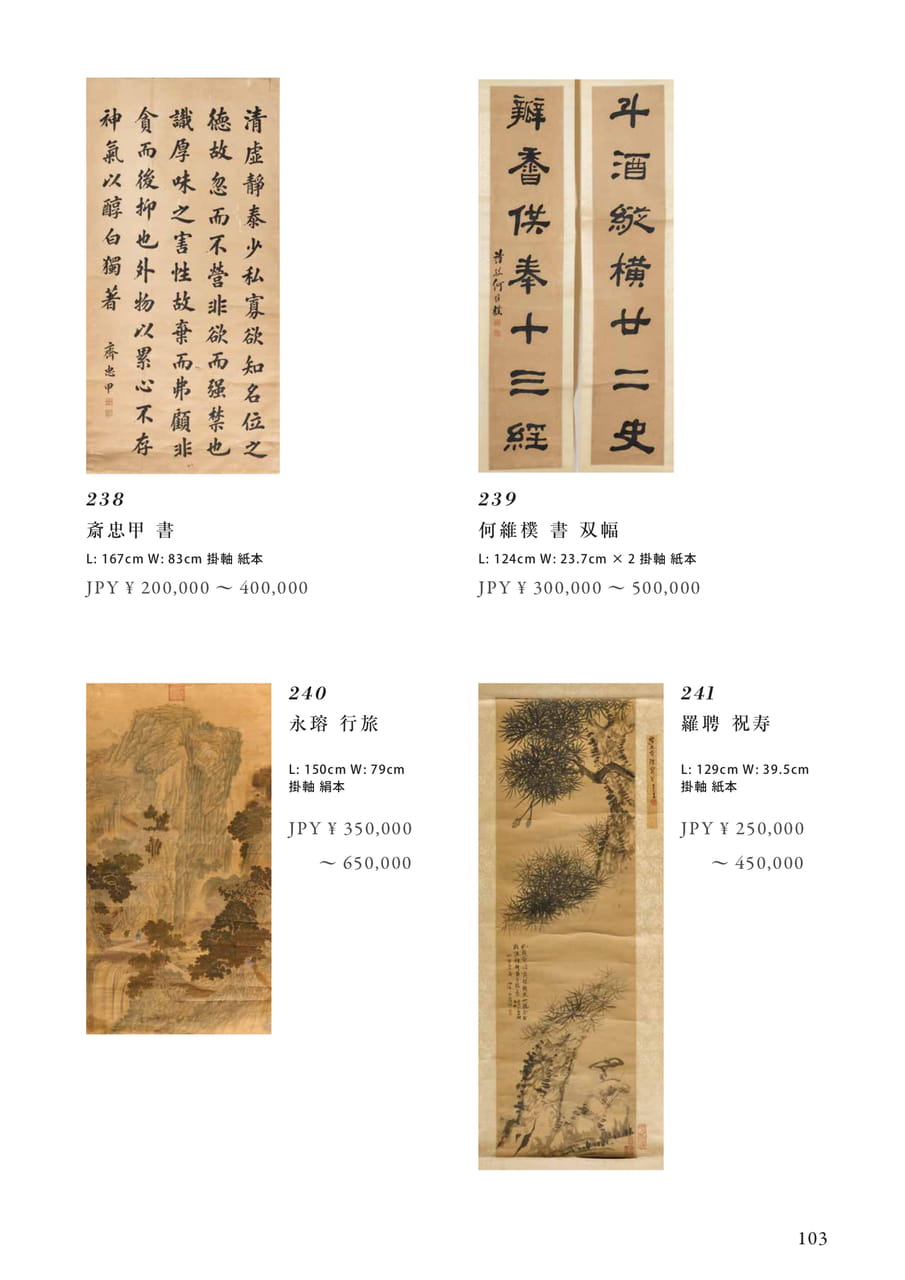 清虛靜泰少私寡欲知名位之
德故忽而不營非欲而强禁也
識厚味之害性故棄而弗顧非
貪而後抑也外物以累心不存
神氣以醇白獨著
齊忠甲
238
斎忠甲 書
L: 167cm W: 83cm 掛軸 紙本
JPY ¥ 200,000 ～ 400,000
斗酒縱橫廿二史
瓣香供奉十三經
239
何維樸 書 双幅
L: 124cm W: 23.7cm × 2 掛軸 紙本
JPY ¥ 300,000 ～ 500,000
240
永瑢 行旅
L: 150cm W: 79cm
掛軸 絹本
JPY ¥ 350,000
～ 650,000
241
羅聘 祝寿
L: 129cm W: 39.5cm
掛軸 紙本
JPY ¥ 250,000
～ 450,000
103